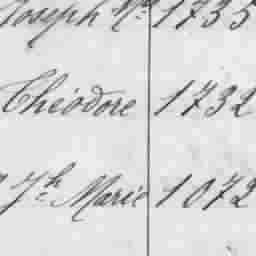 Joseph Mie 1735
Théodore 1732
Jh Marie 1072